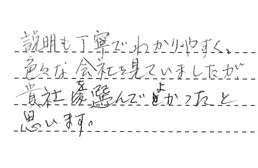 説明も丁寧でわかりやすく、
色々な会社を見ていましたが
貴社を選んでよかったと
思います。